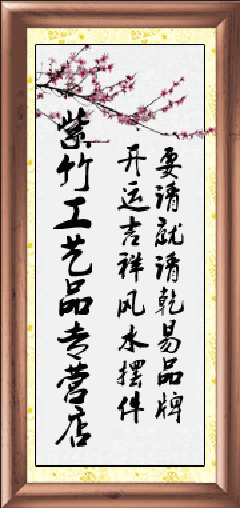 要请就请乾易品牌
开运吉祥风水摆件
紫竹工艺品专营店